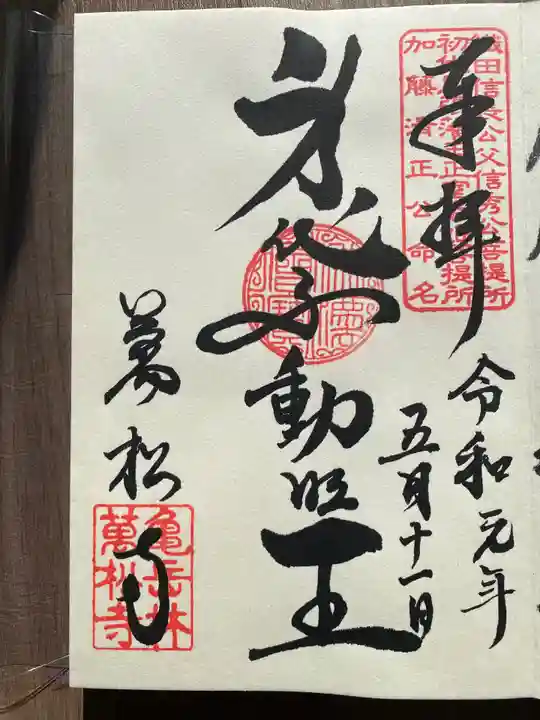 奉拝
令和元年
五月十一日
織田信長公父信秀公菩提所
加藤清正公命名
身代不動明王
萬松寺
亀岳林
萬松寺